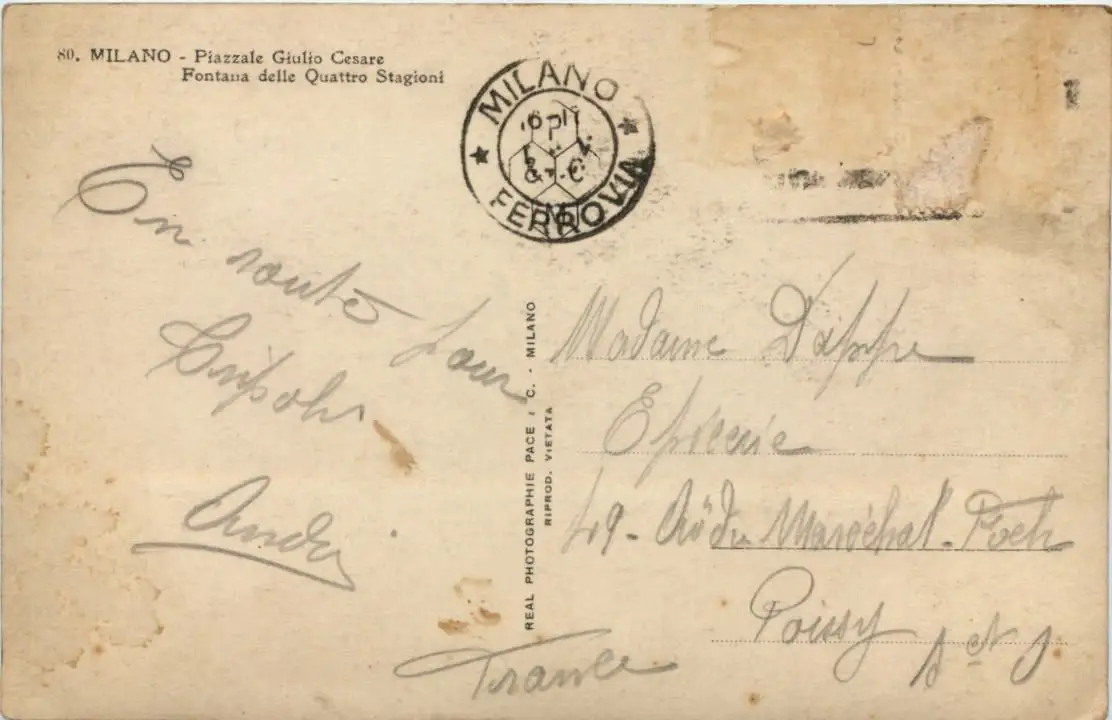 80. MILANO - Piazzale Giulio Cesare
Fontana delle Quattro Stagioni
MILANO
FERROVIA
En route pour
Tripoli
André
REAL PHOTOGRAPHIE PACE
C. - MILANO
RIPROD. VIETATA
Madame
Epicerie
49 - Bd du Maréchal - Foch
Poissy S et O
France